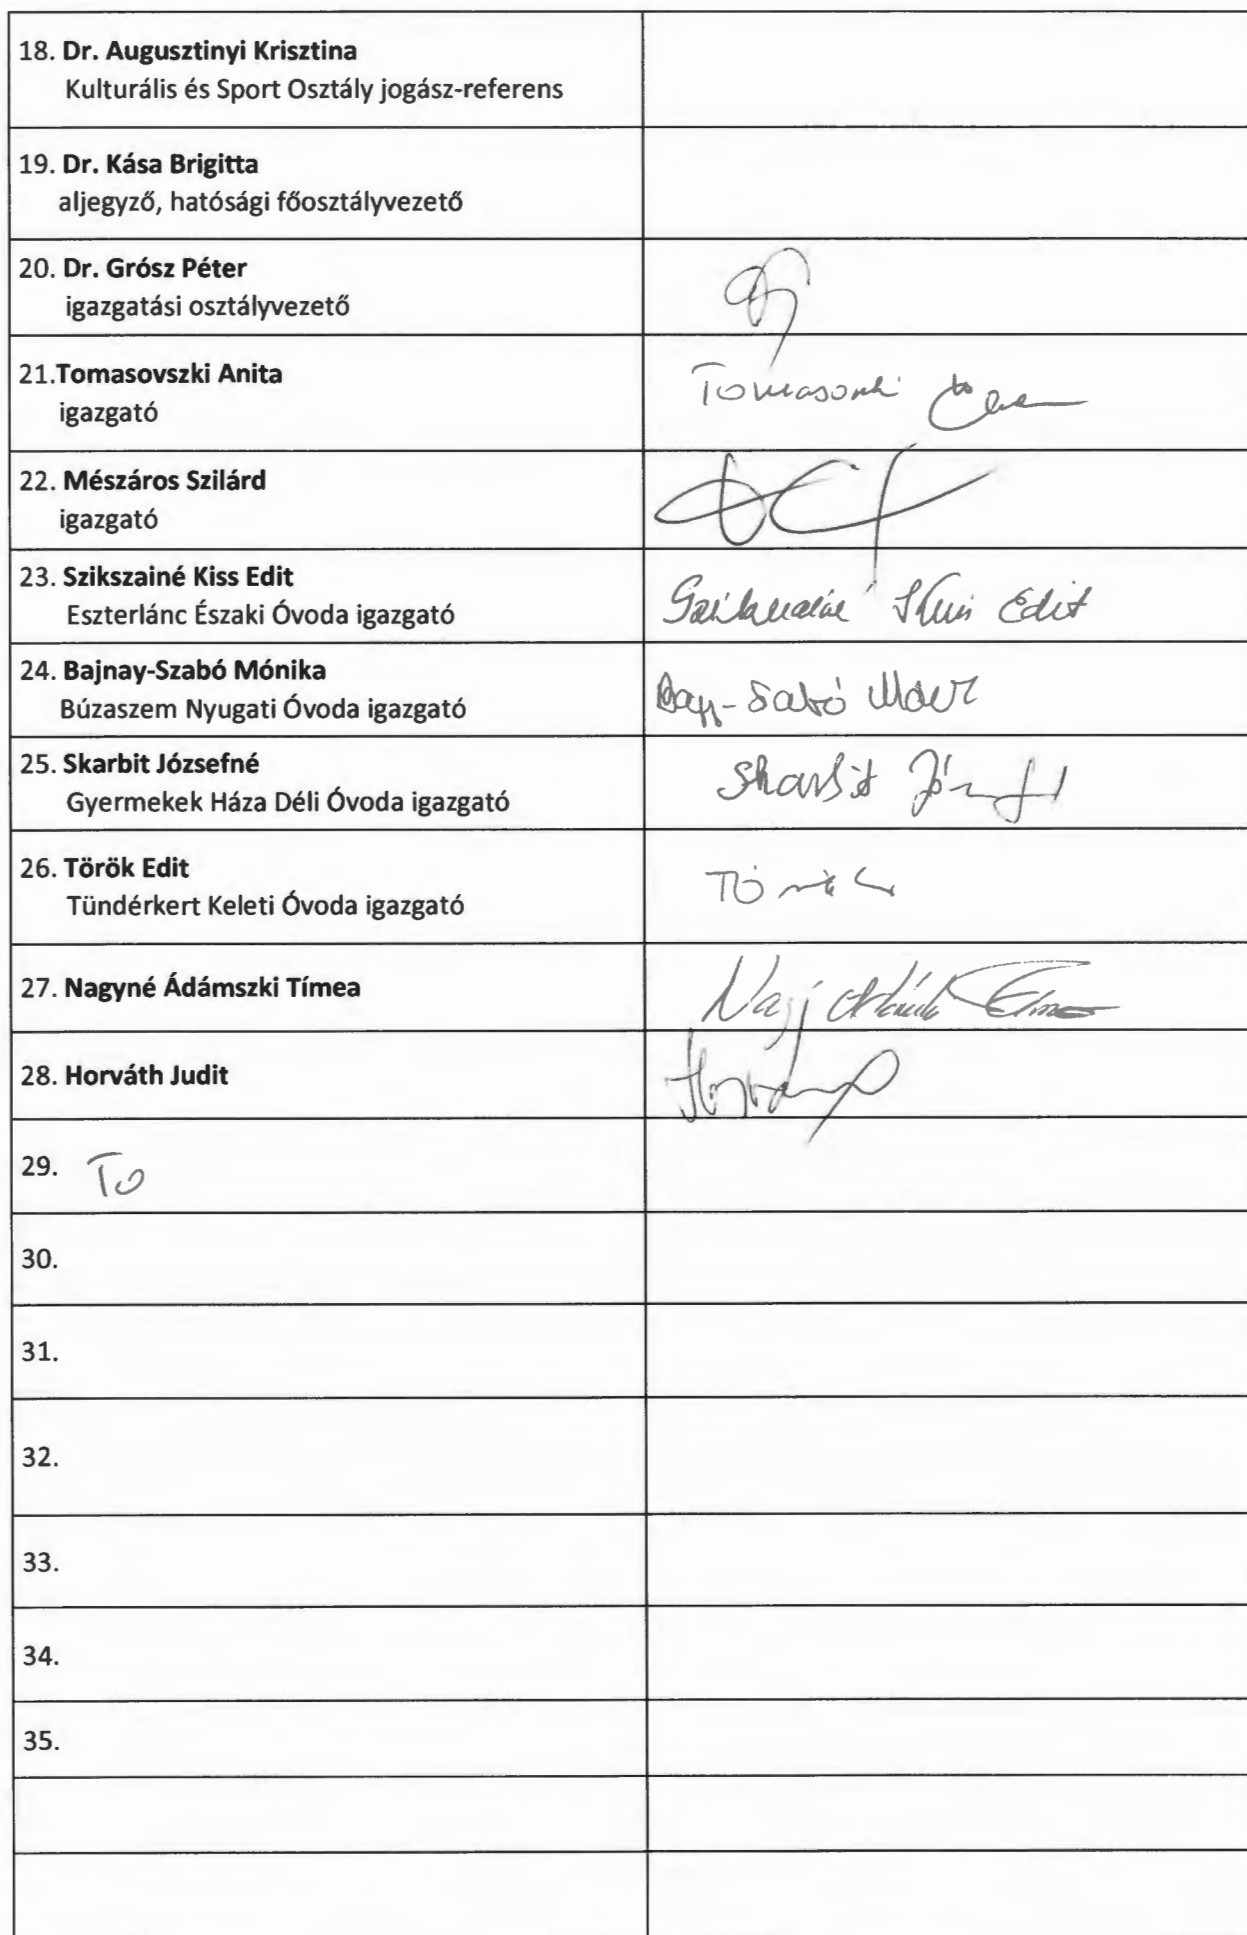 18. Dr. Augusztinyi Krisztina
Kulturális és Sport Osztály jogász-referens
19. Dr. Kása Brigitta
aljegyző, hatósági főosztályvezető
20. Dr. Grósz Péter
igazgatási osztályvezető
21.Tomasovszki Anita
igazgató
22. Mészáros Szilárd
igazgató
23. Szikszainé Kiss Edit
Eszterlánc Északi Óvoda igazgató
Edit
24. Bajnay-Szabó Mónika
Búzaszem Nyugati Óvoda igazgató
25. Skarbit Józsefné
Gyermekek Háza Déli Óvoda igazgató
Skarbit
26. Török Edit
Tündérkert Keleti Óvoda igazgató
27. Nagyné Ádámszki Tímea
28. Horváth Judit
29. To
30.
31.
32.
33.
34.
35.